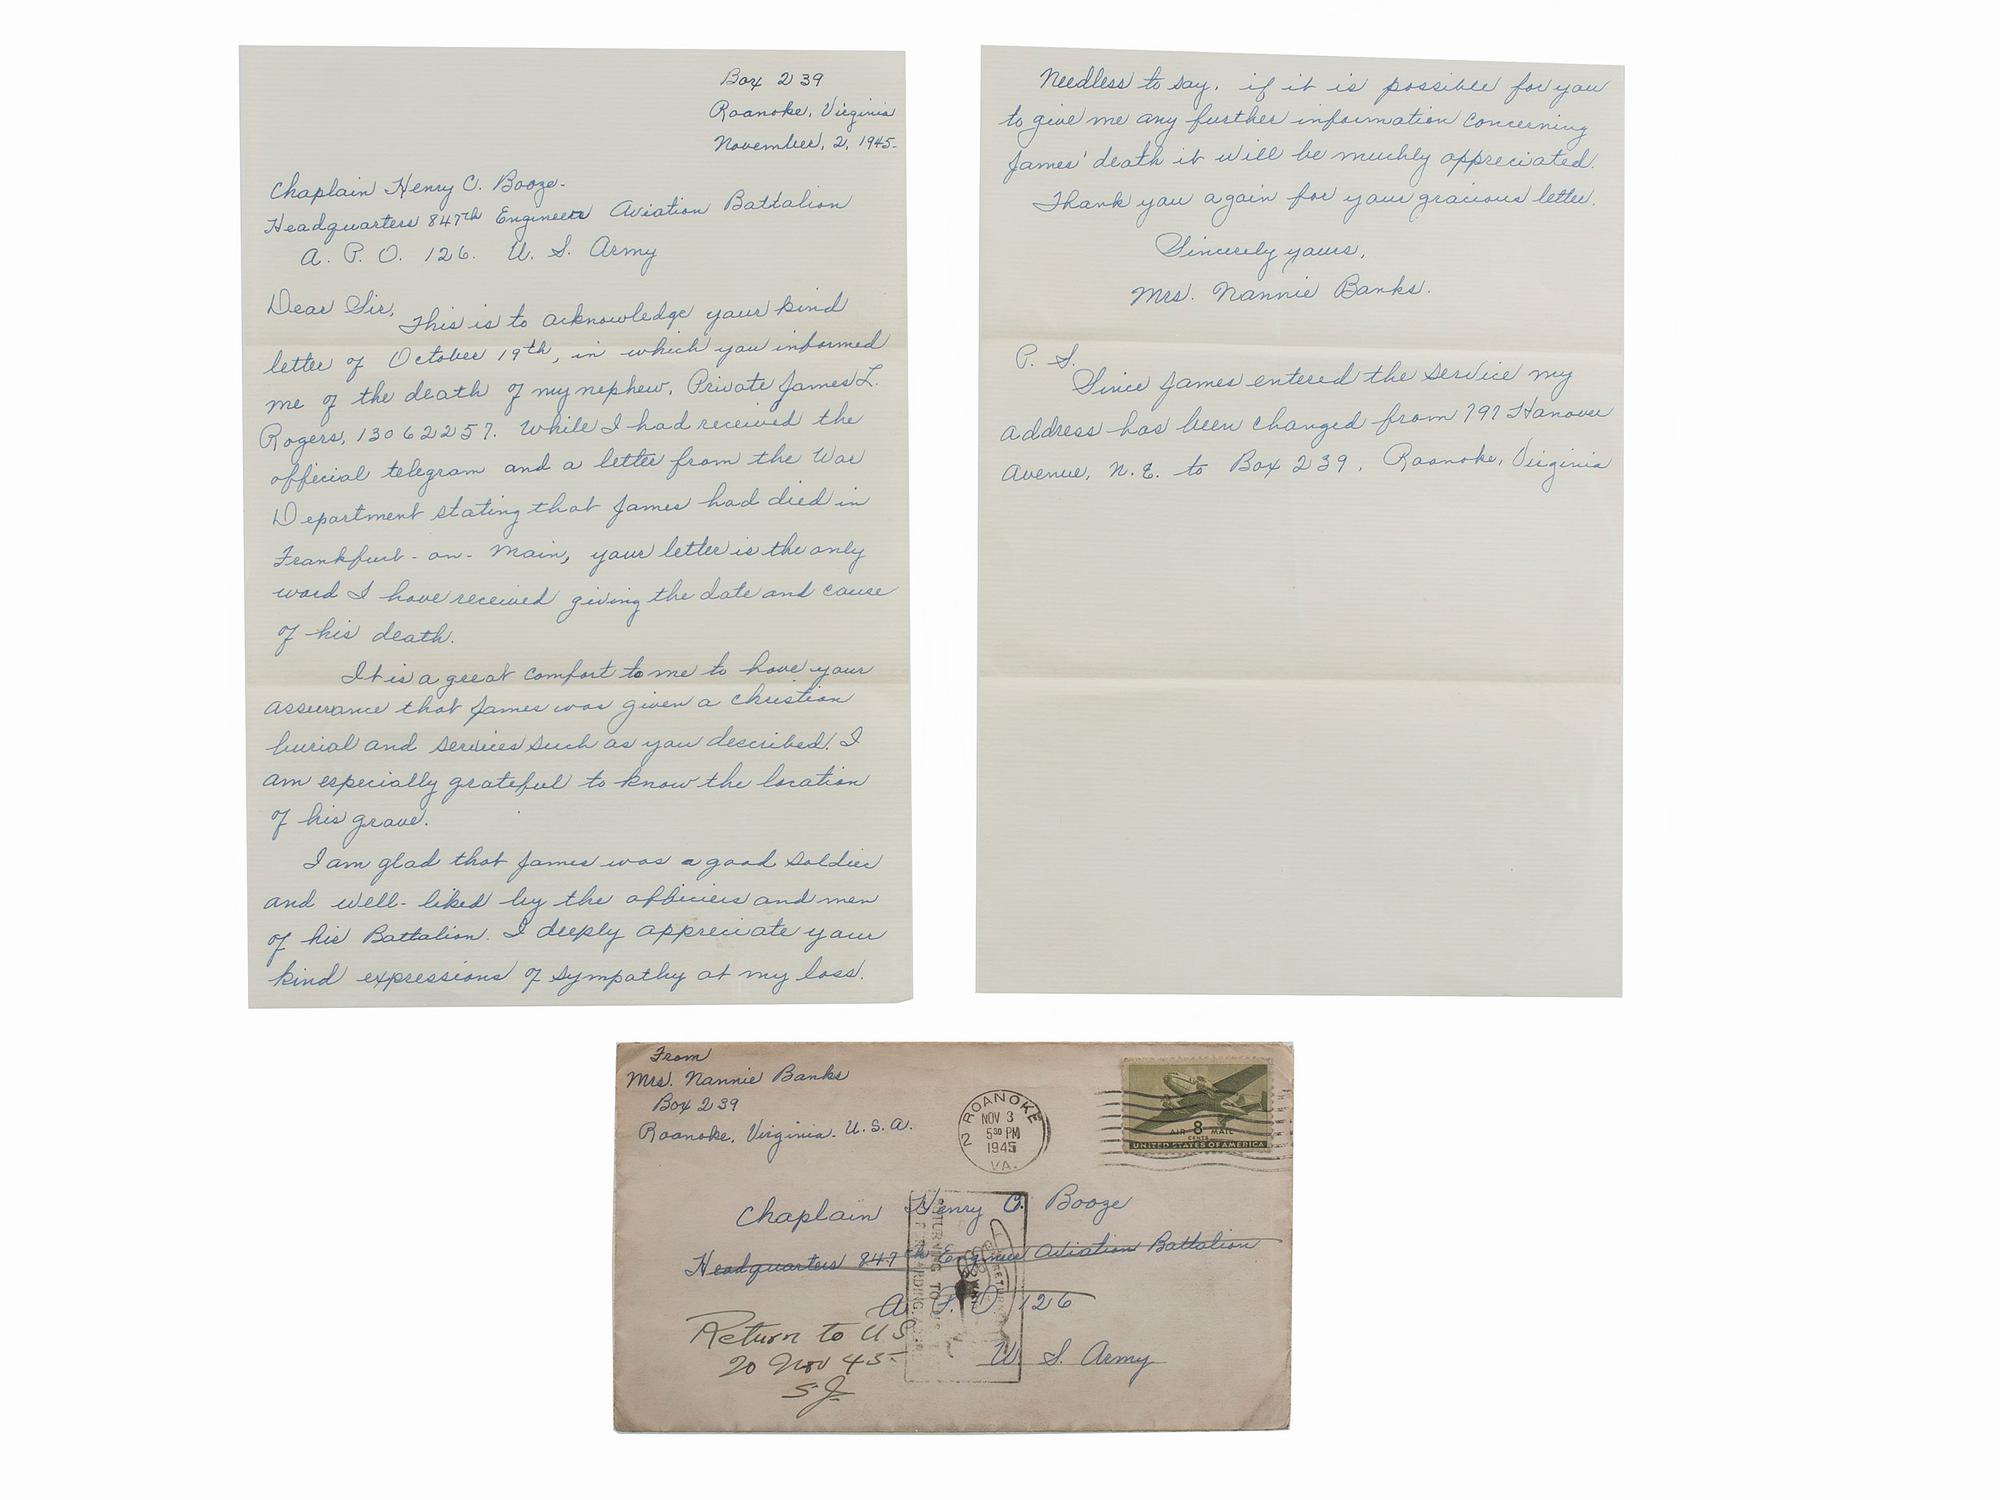 Box 239
Roanoke, Virginia
November, 2, 1945-
Chaplain Henry C. Booze-
Headquarters 847th Engineers Aviation Battalion
A. P. O. 126. U. S. Army
Dear Sir,
This is to acknowledge your kind
letter of October 19th, in which you informed
me of the death of my nephew, Private James L.
Rogers, 13062257. While I had received the
official telegram and a letter from the War
Department stating that James had died in
Frankfurt-on-Main, your letter is the only
word I have received giving the date and cause
of his death.
It is a great comfort to me to have your
assurance that James was given a christian
burial and services such as you described. I
am especially grateful to know the location
of his grave.
I am glad that James was a good soldier
and well-liked by the officiers and men
of his Battalion. I deeply appreciate your
kind expressions of sympathy at my loss.
Needless to say, if it is possible for you
to give me any further information concerning
James' death it will be muchly appreciated.
Thank you again for your gracious letter.
Sincerely yours,
Mrs. Nannie Banks.
P. S.
Since James entered the service my
address has been changed from 797 Hanover
Avenue, N.E. to Box 239, Roanoke, Virginia
From
Mrs. Nannie Banks
Box 239
Roanoke, Virginia. U.S.A.
2 ROANOKE
NOV 3
5 30 PM
1945
VA.
AIR 8 MAIL
CENTS
UNITED STATES OF AMERICA
Chaplain Henry C. Booze
Headquarters 847th Engineer Aviation Battalion
A. P. O. 126
U. S. Army
Return to US
20 Nov 45
SJ
RETURNING TO